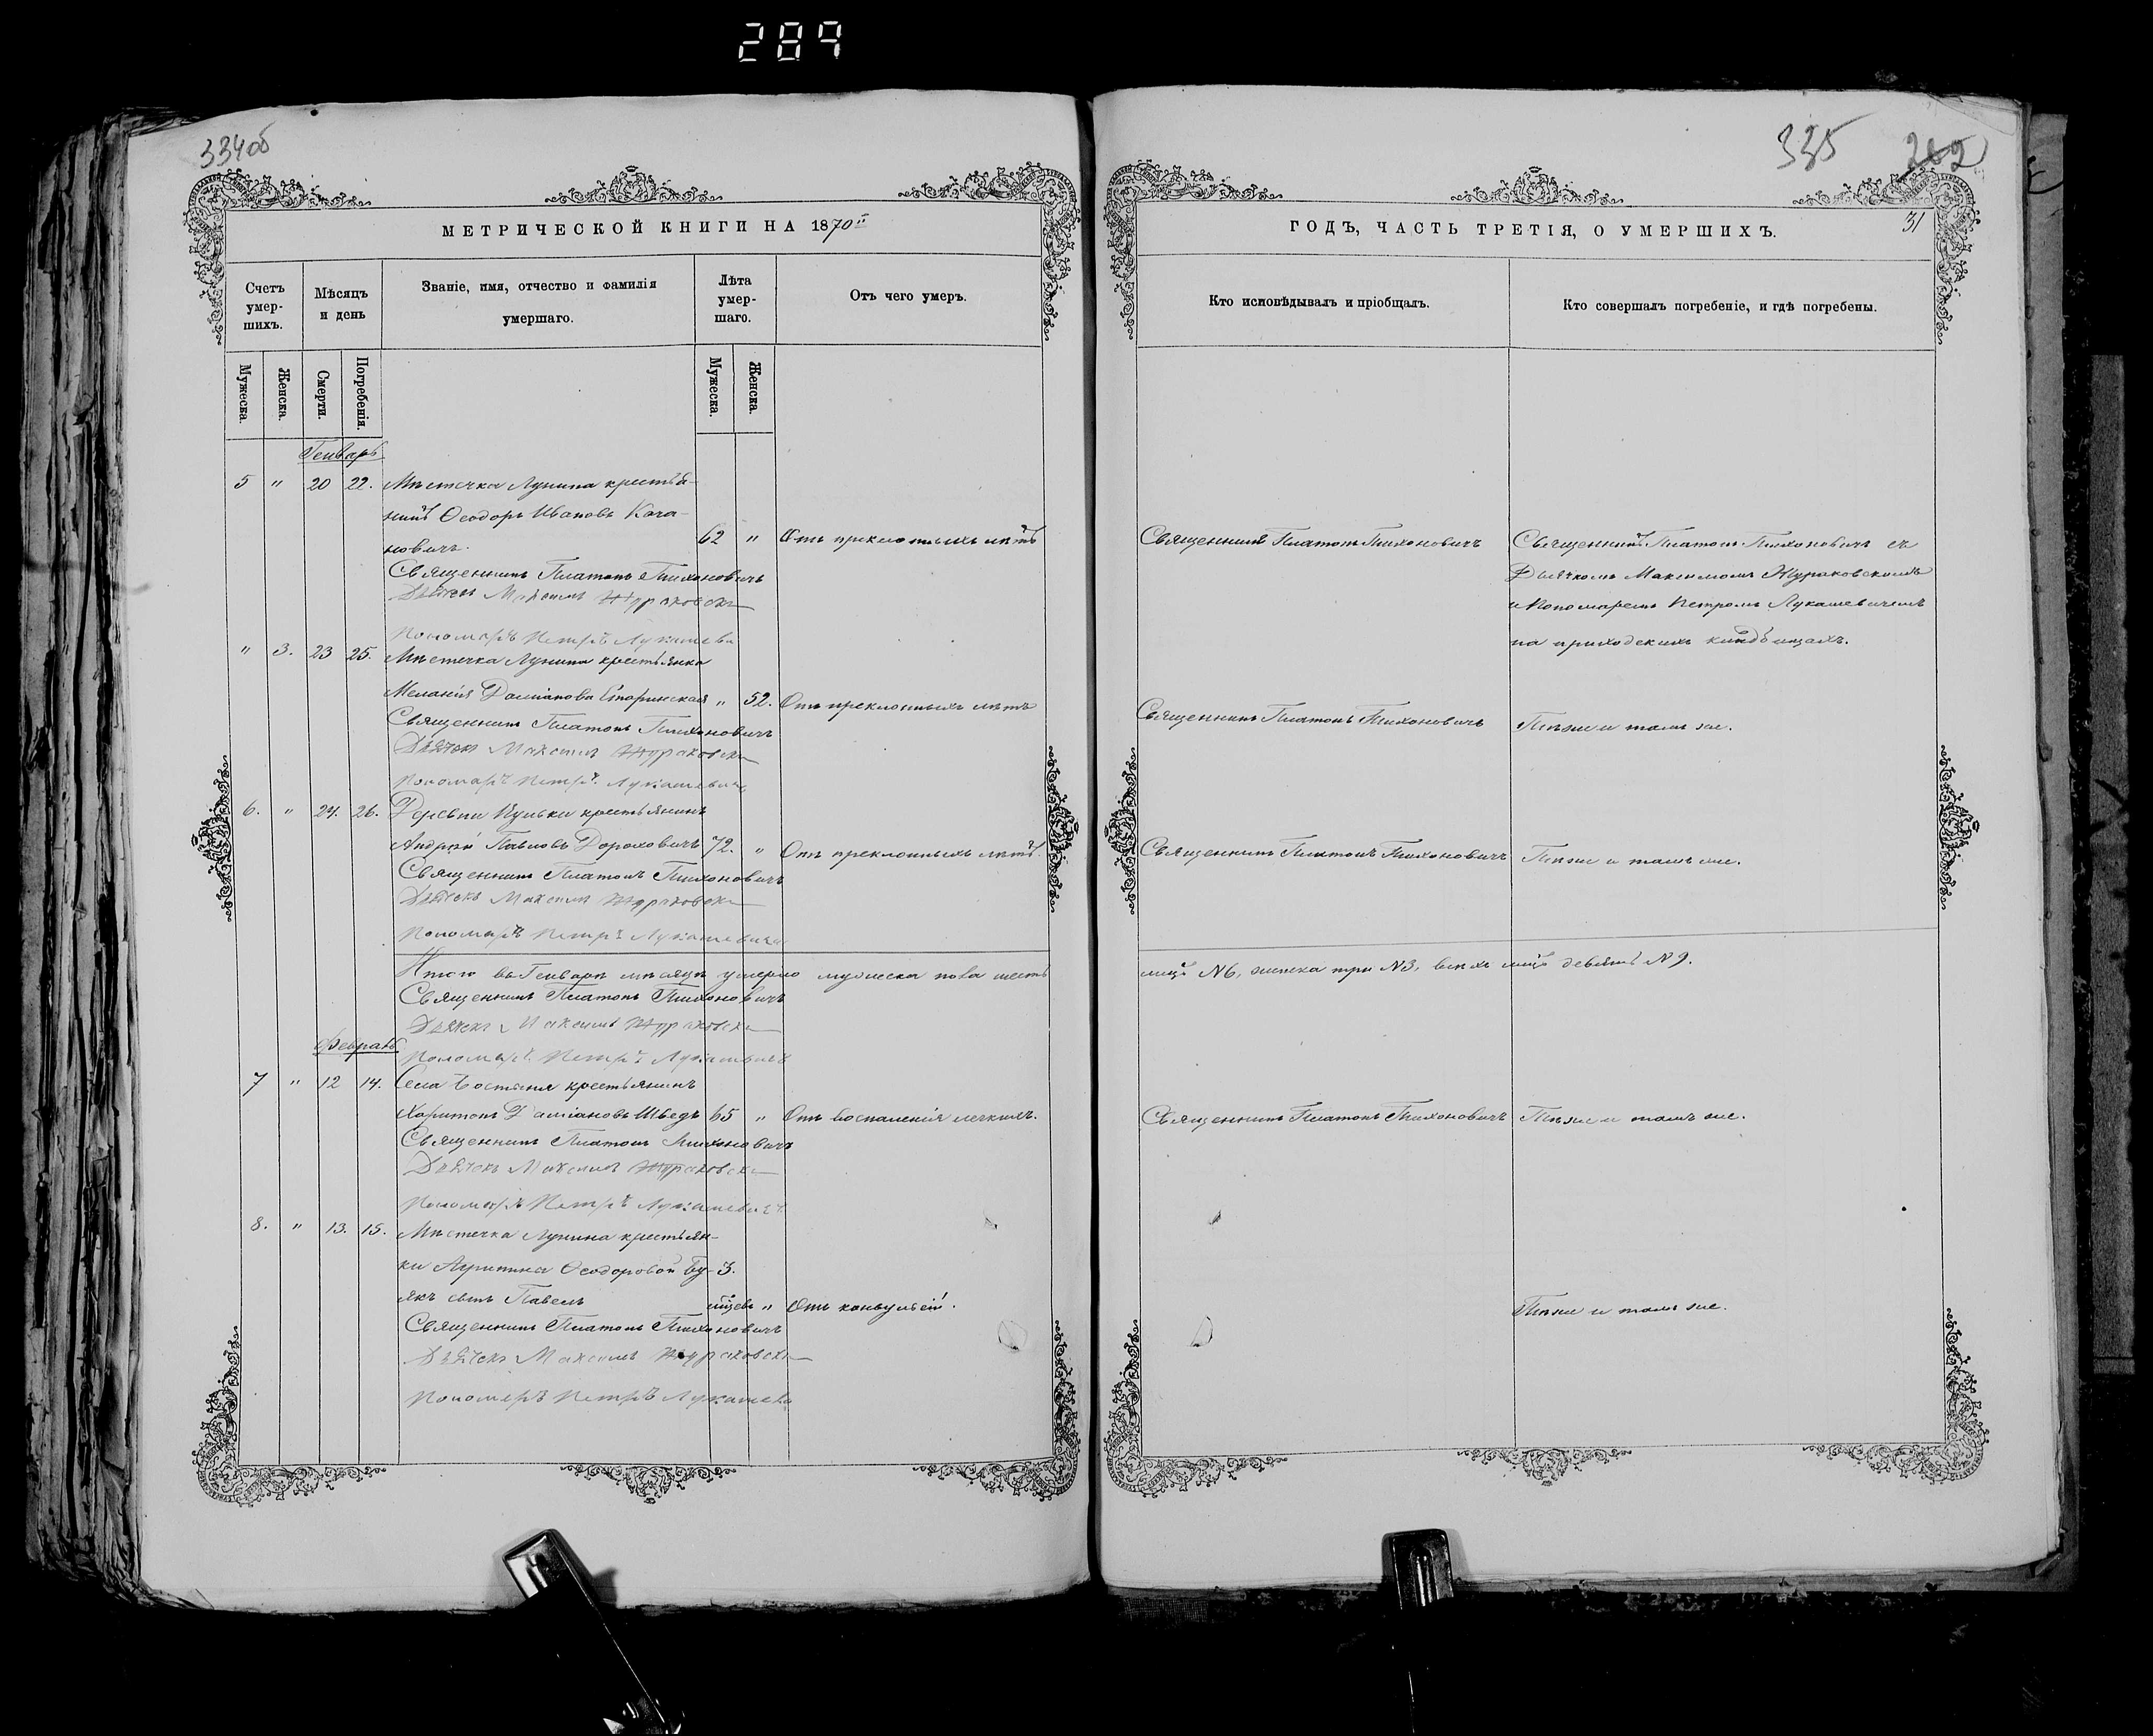 289
334об
МЕТРИЧЕСКОЙ КНИГИ НА 1870й
Счетъ умер-шихъ.
Мѣсяцъ и день
Званіе, имя, отчество и фамилія умершаго.
Лѣта умер-шаго.
Отъ чего умеръ.
Мужеска.
Женска.
Смерти.
Погребенія.
Мужеска.
Женска.
Генварь
5 " 20 22. Мѣстечка Лунина крестья-
нинъ Ѳеодоръ Ивановъ Кача-
новичъ. 62 " Отъ преклонныхъ лѣтъ
Священникъ Платонъ Тихоновичъ
Дьячекъ Максимъ Жураковскій
Пономарь Петръ Лукашевичъ
" 3. 23 25. Мѣстечка Лунина крестьянка
Меланія Даміанова 52. Отъ преклонныхъ лѣтъ
Священникъ Платонъ Тихоновичъ
Дьячекъ Максимъ Жураковскій
Пономарь Петръ Лукашевичъ
6. " 24. 26. Деревни крестьянинъ
Андрей Павловъ Дороховичъ 72. " Отъ преклонныхъ лѣтъ.
Священникъ Платонъ Тихоновичъ
Дьячекъ Максимъ Жураковскій
Пономарь Петръ Лукашевичъ
Итого въ Генварѣ мѣсяцѣ умерло мужеска пола шесть
Священникъ Платонъ Тихоновичъ
Дьячекъ Максимъ Жураковскій
Пономарь Петръ Лукашевичъ
Февраль
7 " 12 14. Села крестьянинъ
Харитонъ Даміановъ Шведъ 65 " Отъ воспаленія легкихъ.
Священникъ Платонъ Тихоновичъ
Дьячекъ Максимъ Жураковскій
Пономарь Петръ Лукашевичъ
8. " 13. 15. Мѣстечка Лунина крестьян-
ки Ѳеодоровой Бу- 3.
якъ сынъ Павелъ мѣсяц " Отъ конвульсій.
Священникъ Платонъ Тихоновичъ
Дьячекъ Максимъ Жураковскій
Пономарь Петръ Лукашевичъ
335
202
31
ГОДЪ, ЧАСТЬ ТРЕТІЯ, О УМЕРШИХЪ.
Кто исповѣдывалъ и пріобщалъ.
Кто совершалъ погребеніе, и гдѣ погребены.
Священникъ Платонъ Тихоновичъ
Священникъ Платонъ Тихоновичъ съ
Дьячкомъ Максимомъ Жураковскимъ
и Пономаремъ Петромъ Лукашевичемъ
на приходскихъ кладбищахъ.
Священникъ Платонъ Тихоновичъ
Тѣже и тамъ же.
Священникъ Платонъ Тихоновичъ
Тѣже и тамъ же.
лицъ №6, женска три №3, всѣхъ лицъ девять №9.
Священникъ Платонъ Тихоновичъ
Тѣже и тамъ же.
Тѣже и тамъ же.